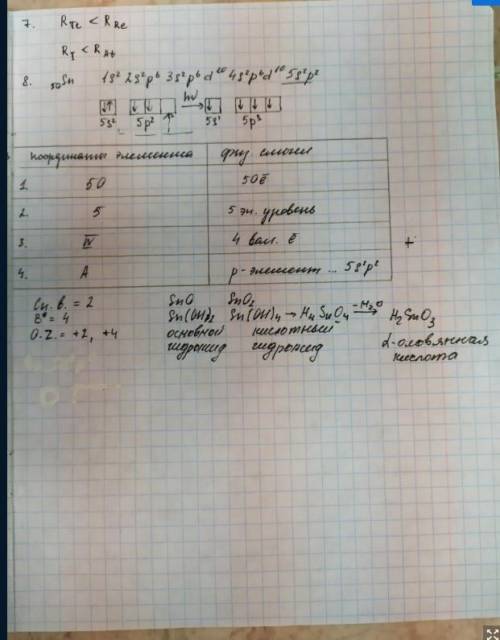 7. R Tc < R Re
R I < R At
8. ₅₀Sn 1s² 2s²p⁶ 3s²p⁶d¹⁰ 4s²p⁶d¹⁰ 5s²p²
hν
5s² 5p² 5s¹ 5p³
координаты элемента физ смысл
1. 50 50ē
2. 5 5 эн. уровень
3. IV 4 вал. ē
4. A p-элемент ... 5s²p²
+
Сп. в. = 2 SnO SnO₂
В* = 4 Sn(OH)₂ Sn(OH)₄ → H₄SnO₄ –H₂O → H₂SnO₃
О.Z. = +2, +4 основной кислотный α-оловянная
гидроксид гидроксид кислота